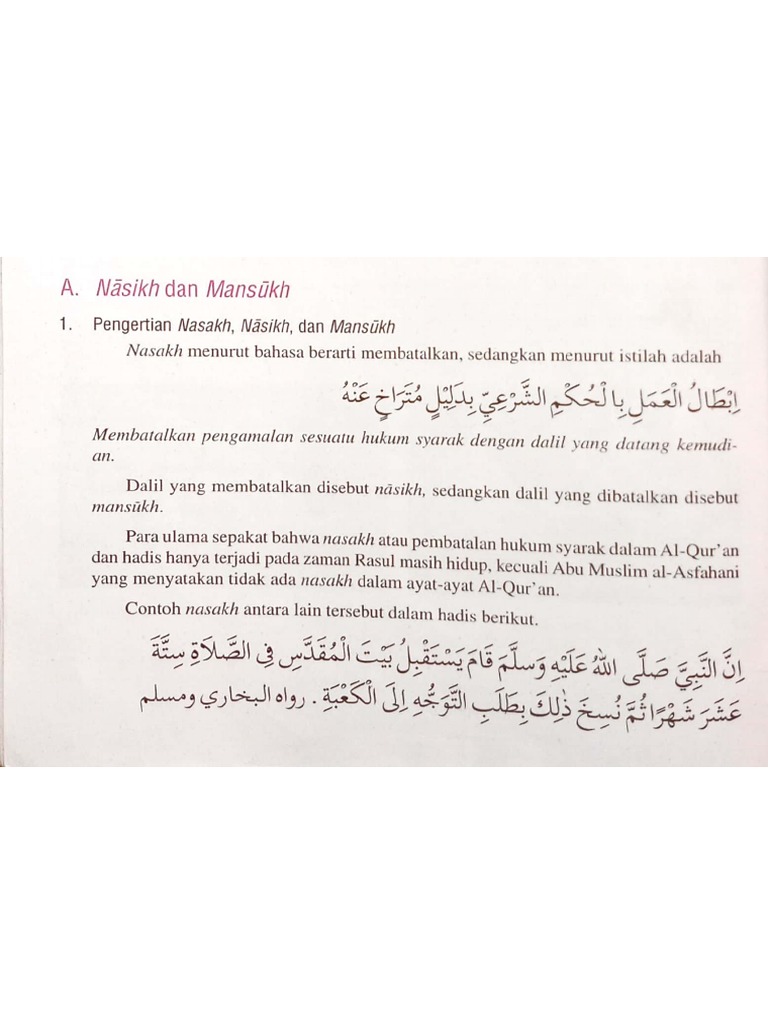 A. Nāsikh dan Mansūkh
1. Pengertian Nasakh, Nāsikh, dan Mansūkh
Nasakh menurut bahasa berarti membatalkan, sedangkan menurut istilah adalah
اِبْطَالُ الْعَمَلِ بِالْحُكْمِ الشَّرْعِيِّ بِدَلِيْلٍ مُتَرَاخٍ عَنْهُ
Membatalkan pengamalan sesuatu hukum syarak dengan dalil yang datang kemudi-
an.
Dalil yang membatalkan disebut nāsikh, sedangkan dalil yang dibatalkan disebut
mansūkh.
Para ulama sepakat bahwa nasakh atau pembatalan hukum syarak dalam Al-Qur'an
dan hadis hanya terjadi pada zaman Rasul masih hidup, kecuali Abu Muslim al-Asfahani
yang menyatakan tidak ada nasakh dalam ayat-ayat Al-Qur'an.
Contoh nasakh antara lain tersebut dalam hadis berikut.
اِنَّ النَّبِيَّ صَلَّى اللهُ عَلَيْهِ وَسَلَّمَ قَامَ يَسْتَقْبِلُ بَيْتَ الْمُقَدَّسِ فِى الصَّلَاةِ سِتَّةَ
عَشَرَ شَهْرًا ثُمَّ نُسِخَ ذٰلِكَ بِطَلَبِ التَّوَجُّهِ اِلَى الْكَعْبَةِ . رواه البخاري ومسلم